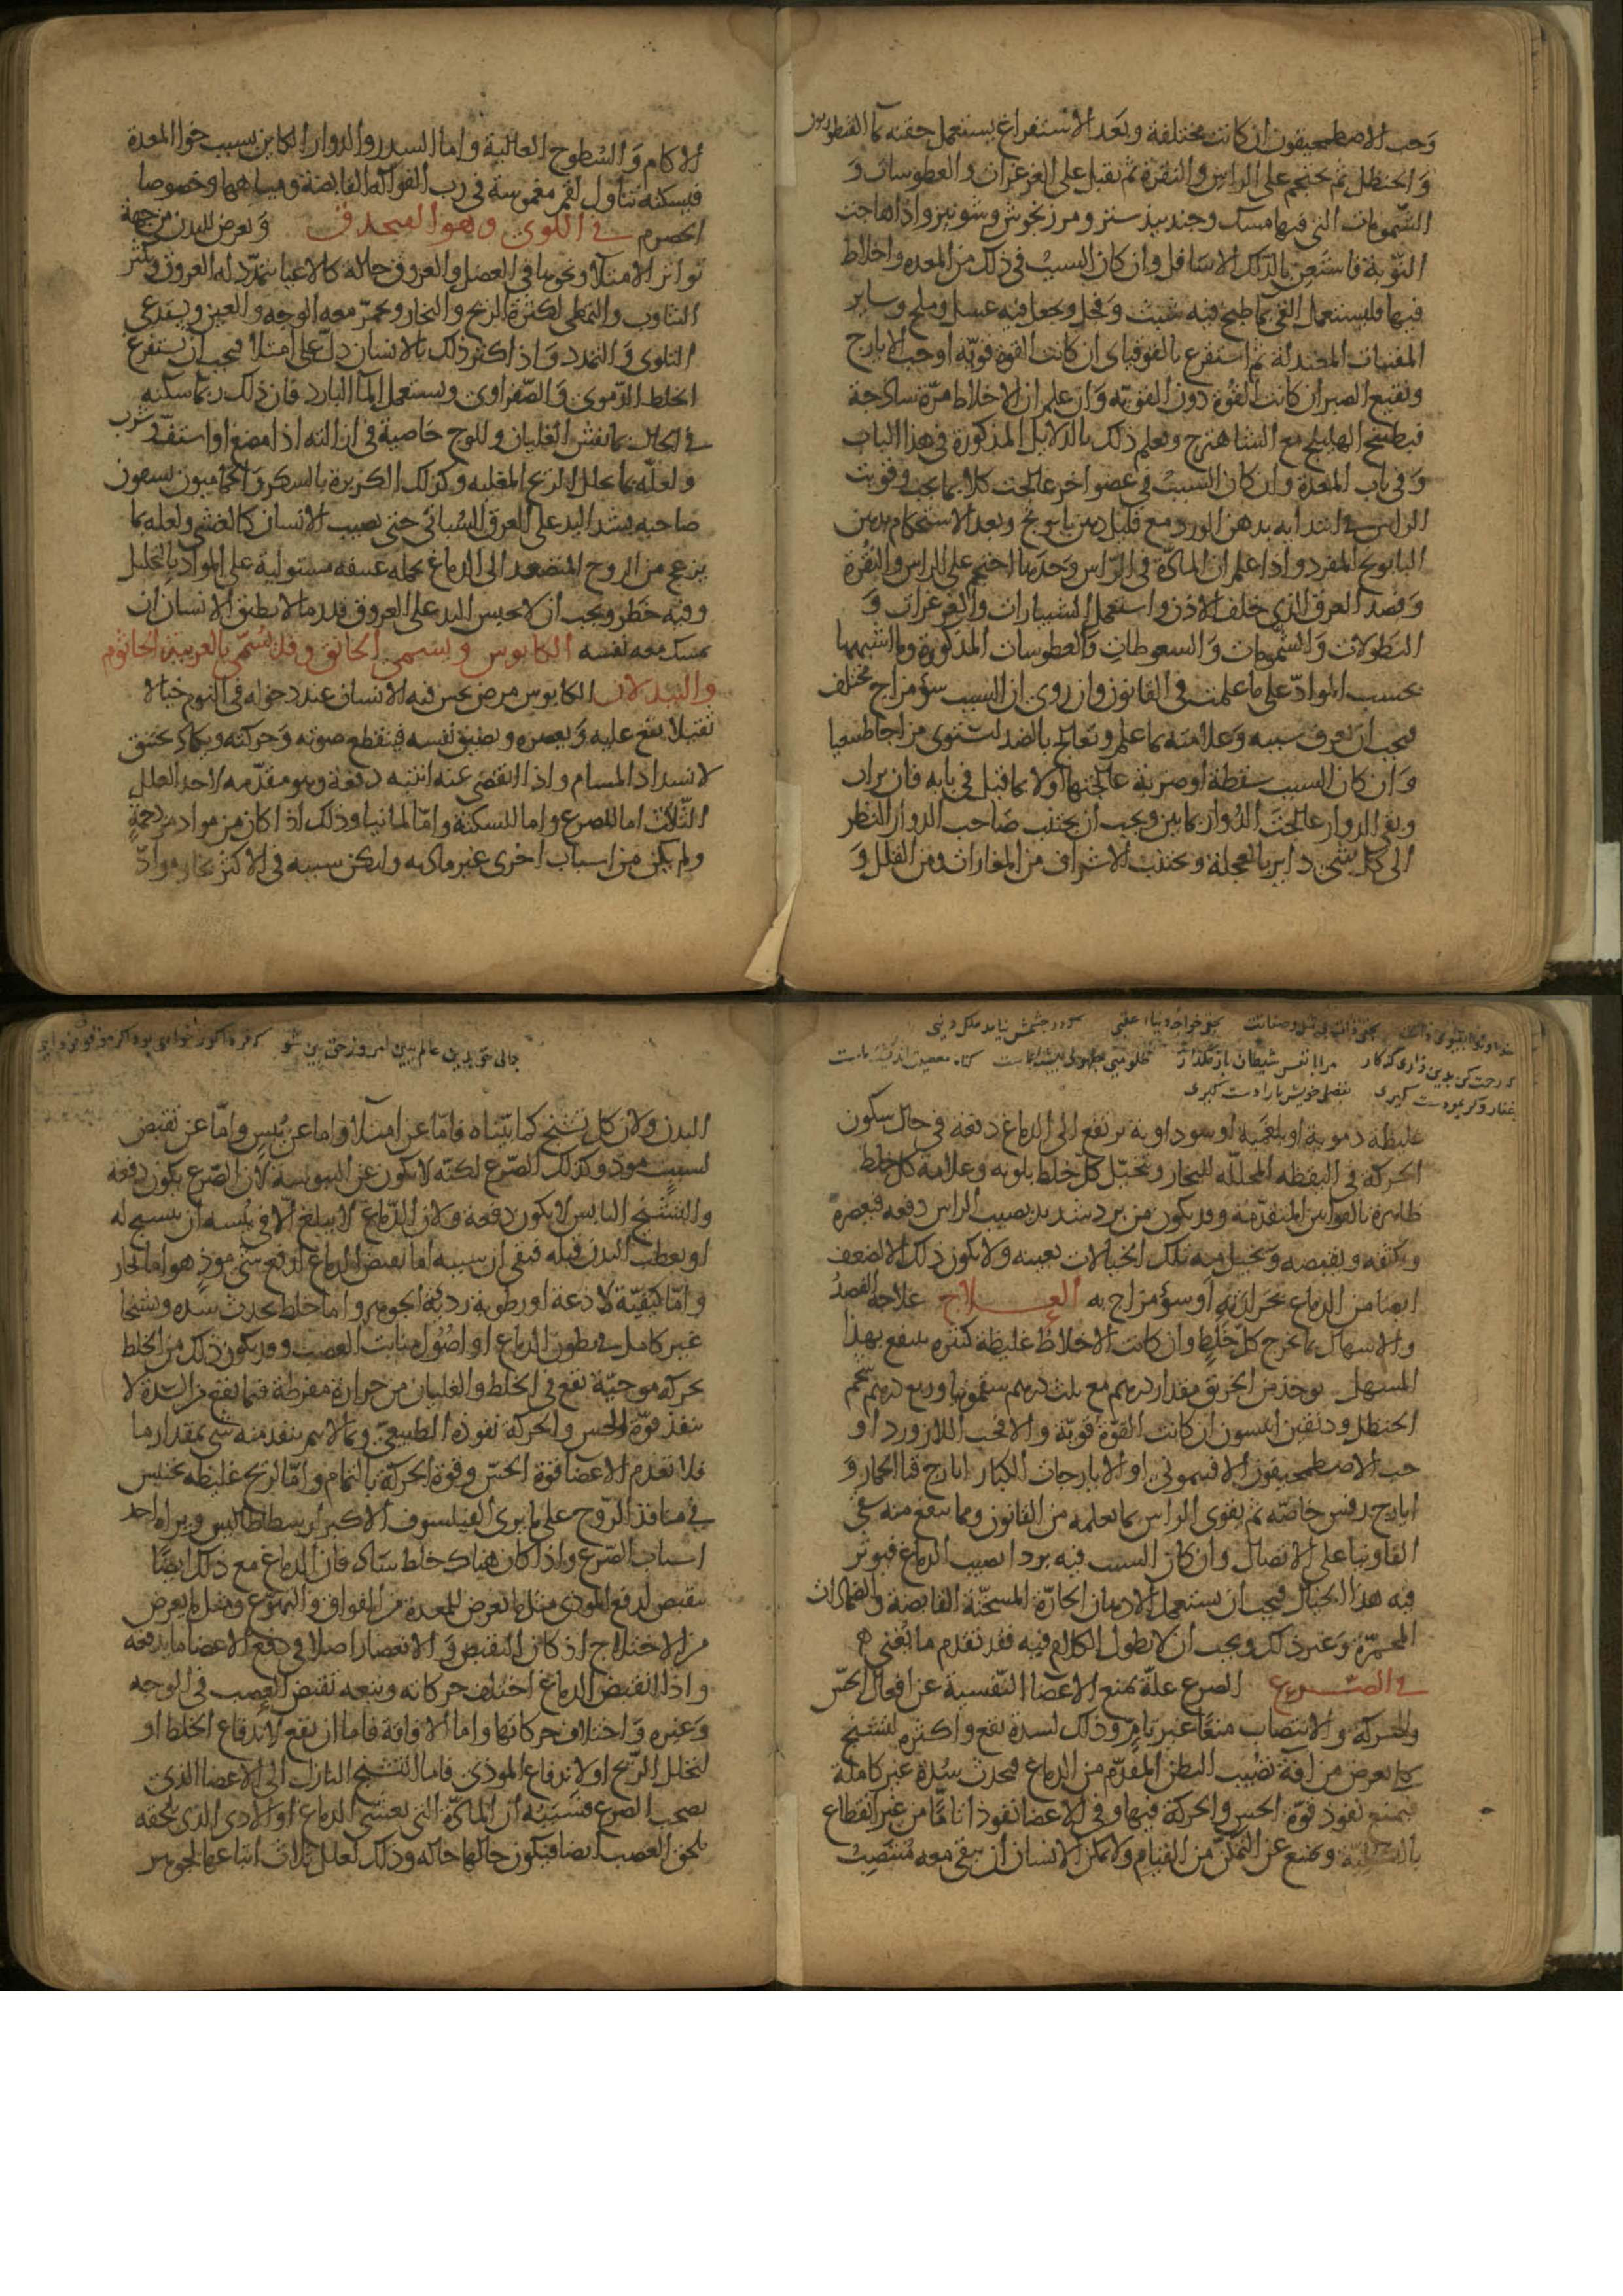 وَحب الاصطمحيقون ان كانت مختلفة وبَعد الاستفراغ يستعمل حقنه ماء القنطوريون
وَالحنظل ثم يحتجم على الراس والنقرة ثم تقبل على الغرغرات والعطوسات وَ
الشمومات التى فيها مسك وجندبيدستر ومرزنجوش وشونيز واذا هاجت
النَّوبة فاستَعِن بالدَّلك الاسَافل وان كان السببُ فى ذلك من المعده واخلاط
فيها فليستعمل القى بما طبخ فيه شبت وَفجل وجعل فيه عسل وملح وساير
المقيئات المعتدلة ثم استفرغ بالقوقايا ان كانت القوة قويّه او حب الايارج
ونقيع الصبر ان كانت القوة دون القويّه وَان علم ان الاخلاط مرّة ساذجة
فبطبيخ الهليلج مع الشاهترج وتعلم ذلك بالدلايل المذكورة فى هذا الباب
وَفى باب المعدة وان كان السببُ فى عضو اخر عالجت كلا بما يجب وقويت
الراس فى ابتدايه بدهن الورد مع قليل دهن بابونج وبعد الاستحكام بدهن
البابونج المفرد واذا علم ان المادّة فى الرّاس وَحدَها احتجم على الراس والنُّقرة
وَفصد العرق الذى خلف الاذن واستعمل الشبيارات والغرغرات وَ
النطولات وَالشمومات وَالسعوطات وَالعطوسات المذكورة وما اشبهها
بحسب الموادّ على ما علمت فى القانون وان روى ان السبب سؤ مزاج مختلف
فيجب ان يعرف سببه وَعلامته بما علم ويعالج بالضد ليستوى مزاجا طبيعيا
وَان كان السبب سقطة او ضربة عالجتها اولا بما قيل فى بابه فان برات
وبقى الدوار عالجتَ الدُّوار بما بين ويجب ان يجتنب صَاحب الدوار النظر
الى كل شئ داير بالعجلة ويجتنب الاشراف من المغارات ومن القلل وَ
الاكام وَالسُطوح العالية واما السدر والدوار الكاين بسبب خوا المعدة
فيسكنه تناول لقم مغموسة فى رب الفواكه القابضة ومياهها وخصوصا
الحصرم فى اللوى وهو الفيحدق وَيعرض للبدن من جهة
تواتر الامتلاء ونحوها فى العضل والعروق حالة كالاعيا يتمدّد له العروق ويكثر
التثاوب والتمطى لكثرة الريح والبخار ويحمرّ معه الوجه والعين ويستدعى
التلوى وَالتمدد وَاذا كثر ذلك بالانسان دلّ على امتلاء فيجب ان يستفرغ
الخلط الدّموى وَالصّفراوى ويستعمل الماء البارد فان ذلك ربما سكنه
فى الحال بما يفش الغليان وللوج خاصية فى ازالته اذا مضغ او استفّ فى شرب
ولعلّه بما يحلل الريح المغليه وكذلك الكزبرة بالسكر وَالحمّاميون يسعون
صاحبه بشد اليد على العرق السُّباتى حتى يصيب الانسان كالغشى ولعله بما
يزعج من الروح المتصعد الى الدماغ بحمله عنيفه مستولية على المواد بالتحليل
وفيه خَطر ويجب ان لا يحبس اليد على العروق قدر ما لا يطيق الانسان ان
يمسك معه نفسه الكابوس ويسمى الخانق وقد يُسَمّى بالعربية الجاثوم
والنيدلان الكابوس مرض يحس فيه الانسان عند دخوله فى النوم خيالا
ثقيلا يقع عليه وَيعصره ويضيق نفسه فينقطع صوته وَحركته ويكاد يختنق
لانسداد المسام واذا انقضى عنه انتبه دفعة وهو مقدّمه لاحد العلل
الثّلاث اما للصرع واما للسكتة وامّا لمانيا وذلك اذا كان من مواد مزدحمةٍ
ولم يكن من اسباب اخرى غير ماديه ولكن سببه فى الاكثر بخار موادّ
غليظة دموية او بلغميه او سوداوية يرتفع الى الدماغ دفعة فى حال سكون
الحركة فى اليقظه المحلله للبخار ويتخيّل كلّ خلط بلونه وعلامة كل خلط
ظاهرة بالقوانين المتقدّمة وقد يكون من برد شديد يصيب الراس دفعه فيعصره
ويكثفه ويقبضه وَيخيل منه تلك الخيالات بعينه ولا يكون ذلك الا لضعف
ايضا من الدماغ بحَرارَتِهِ اَو سؤ مزاج به العـــلاج علاجه الفَصدُ
والاسهال بما يخرج كلّ خلط وان كانت الاخلاط غليظة كثيره ينتفع بهذا
المسهل يوخذ من الخربق مقدار درهم مع ثلث درهم سقمونيا وربع درهم شحم
الحنظل ودنقين انيسون ان كانت القوّة قويّة والا فحب اللازورد او
حب الاصطمحيقون الافيمونى او الايارجات الكبار ايارج قثاء الحمار وَ
ايارج رفس خاصّه ثم يقوى الراس بما تعلمه من القانون ومما ينفع منه سقى
الفاونيا على الاتصال وان كان السبب فيه بردا يصيب الدماغ فيوثر
فيه هذا الخيال فيجب ان يستعمل الادهان الحارّة المسخّنة القابضة والضمادات
المحمّرة وَغير ذلك ويجب ان لا يطول الكلام فيه فقد تقدم ما يُغنى
فى الصــرع الصرع علّة تمنع الاعضاء النّفسية عن افعال الحسّ
والحركة والانتصاب منعًا غير تامّ وذلك لسدة تقع واكثره لتشنج
كلى يعرض من افة تصيب البطن المقدّم من الدماغ فيحدث سُدة غير كاملة
فيمنع نفوذ قوّة الحس والحركة فيها وفى الاعضاء نفوذا تامًّا من غير انقطاع
بالكليّة ويمنع عن التمكّن من القيام ولا يمكن الانسان ان يبقى معه مُنتَصِبُ
البدن ولان كل تشنج كما بيّناه فامّا عن امتلاء واما عن يُبسٍ وامّا عن تقبض
لسبب موذ وكذلك الصّرع لكنّه لا يكون عن اليبوسة لان الصّرع يكون دفعة
والتشنّج اليابس لا يكون دفعة ولان الدّماغ لا يبلغ الّا فى يُبسه ان يتشنج له
او يعطب البدن قبله فبقى ان سببه اما لقبض الدماغ لدفع شئ موذٍ هو اما بخار
وامّا كيفيّة لاذعة او رطوبة رديّة الجوهر واما خلط يحدث سدّه وتشنجا
غير كامل فى بطون الدماغ او اصُول منابت العصب وقد يكون ذلك من الخلط
بحركه موجيّة تقع فى الخلط والغليان من حرارة مفرطة فيما يقع من السّدة لا
ينفذ قوّة الحس والحركة نفوذه الطبيعىّ وبما لا يتم ينفذ منه شئ بمقدار ما
فلا تعدم الاعضاء قوة الحسّ وقوة الحركة بالتمام وامّا لريح غليظه تحتبس
فى منافذ الرّوح على ما يرى الفيلسوف الاكبر ارسطاطاليس ويراه احد
اسباب الصّرع واذا كان هناك خلط ساد فان الدماغ مع ذلك ايضًا
يتقبض لدفع الموذى مثل ما يعرض للمعدة من الفواق والتهوّع ومثل ما يعرض
من الاختلاج اذ كان التقبض وَالانعصار اصلا فى دفع الاعضا ما يدفعه
واذا انقبض الدماغ اختلف حركاته ويتبعه تقبض العصب فى الوجه
وَغيره وَاختلاف حركاتها واما الافاقة فاما ان يقع لاندفاع الخلط او
لتحلل الرّيح او لاندفاع الموذى فاما التشنج النازل الى الاعضا الذى
يصحب الصرع فسَبَبُه ان المادّة التى تغشى الدماغ او الاذى الذى يلحقه
يلحق العصب ايضا فيكون حالها حاله وذلك لعلل ثلاث اتباعها لجوهر